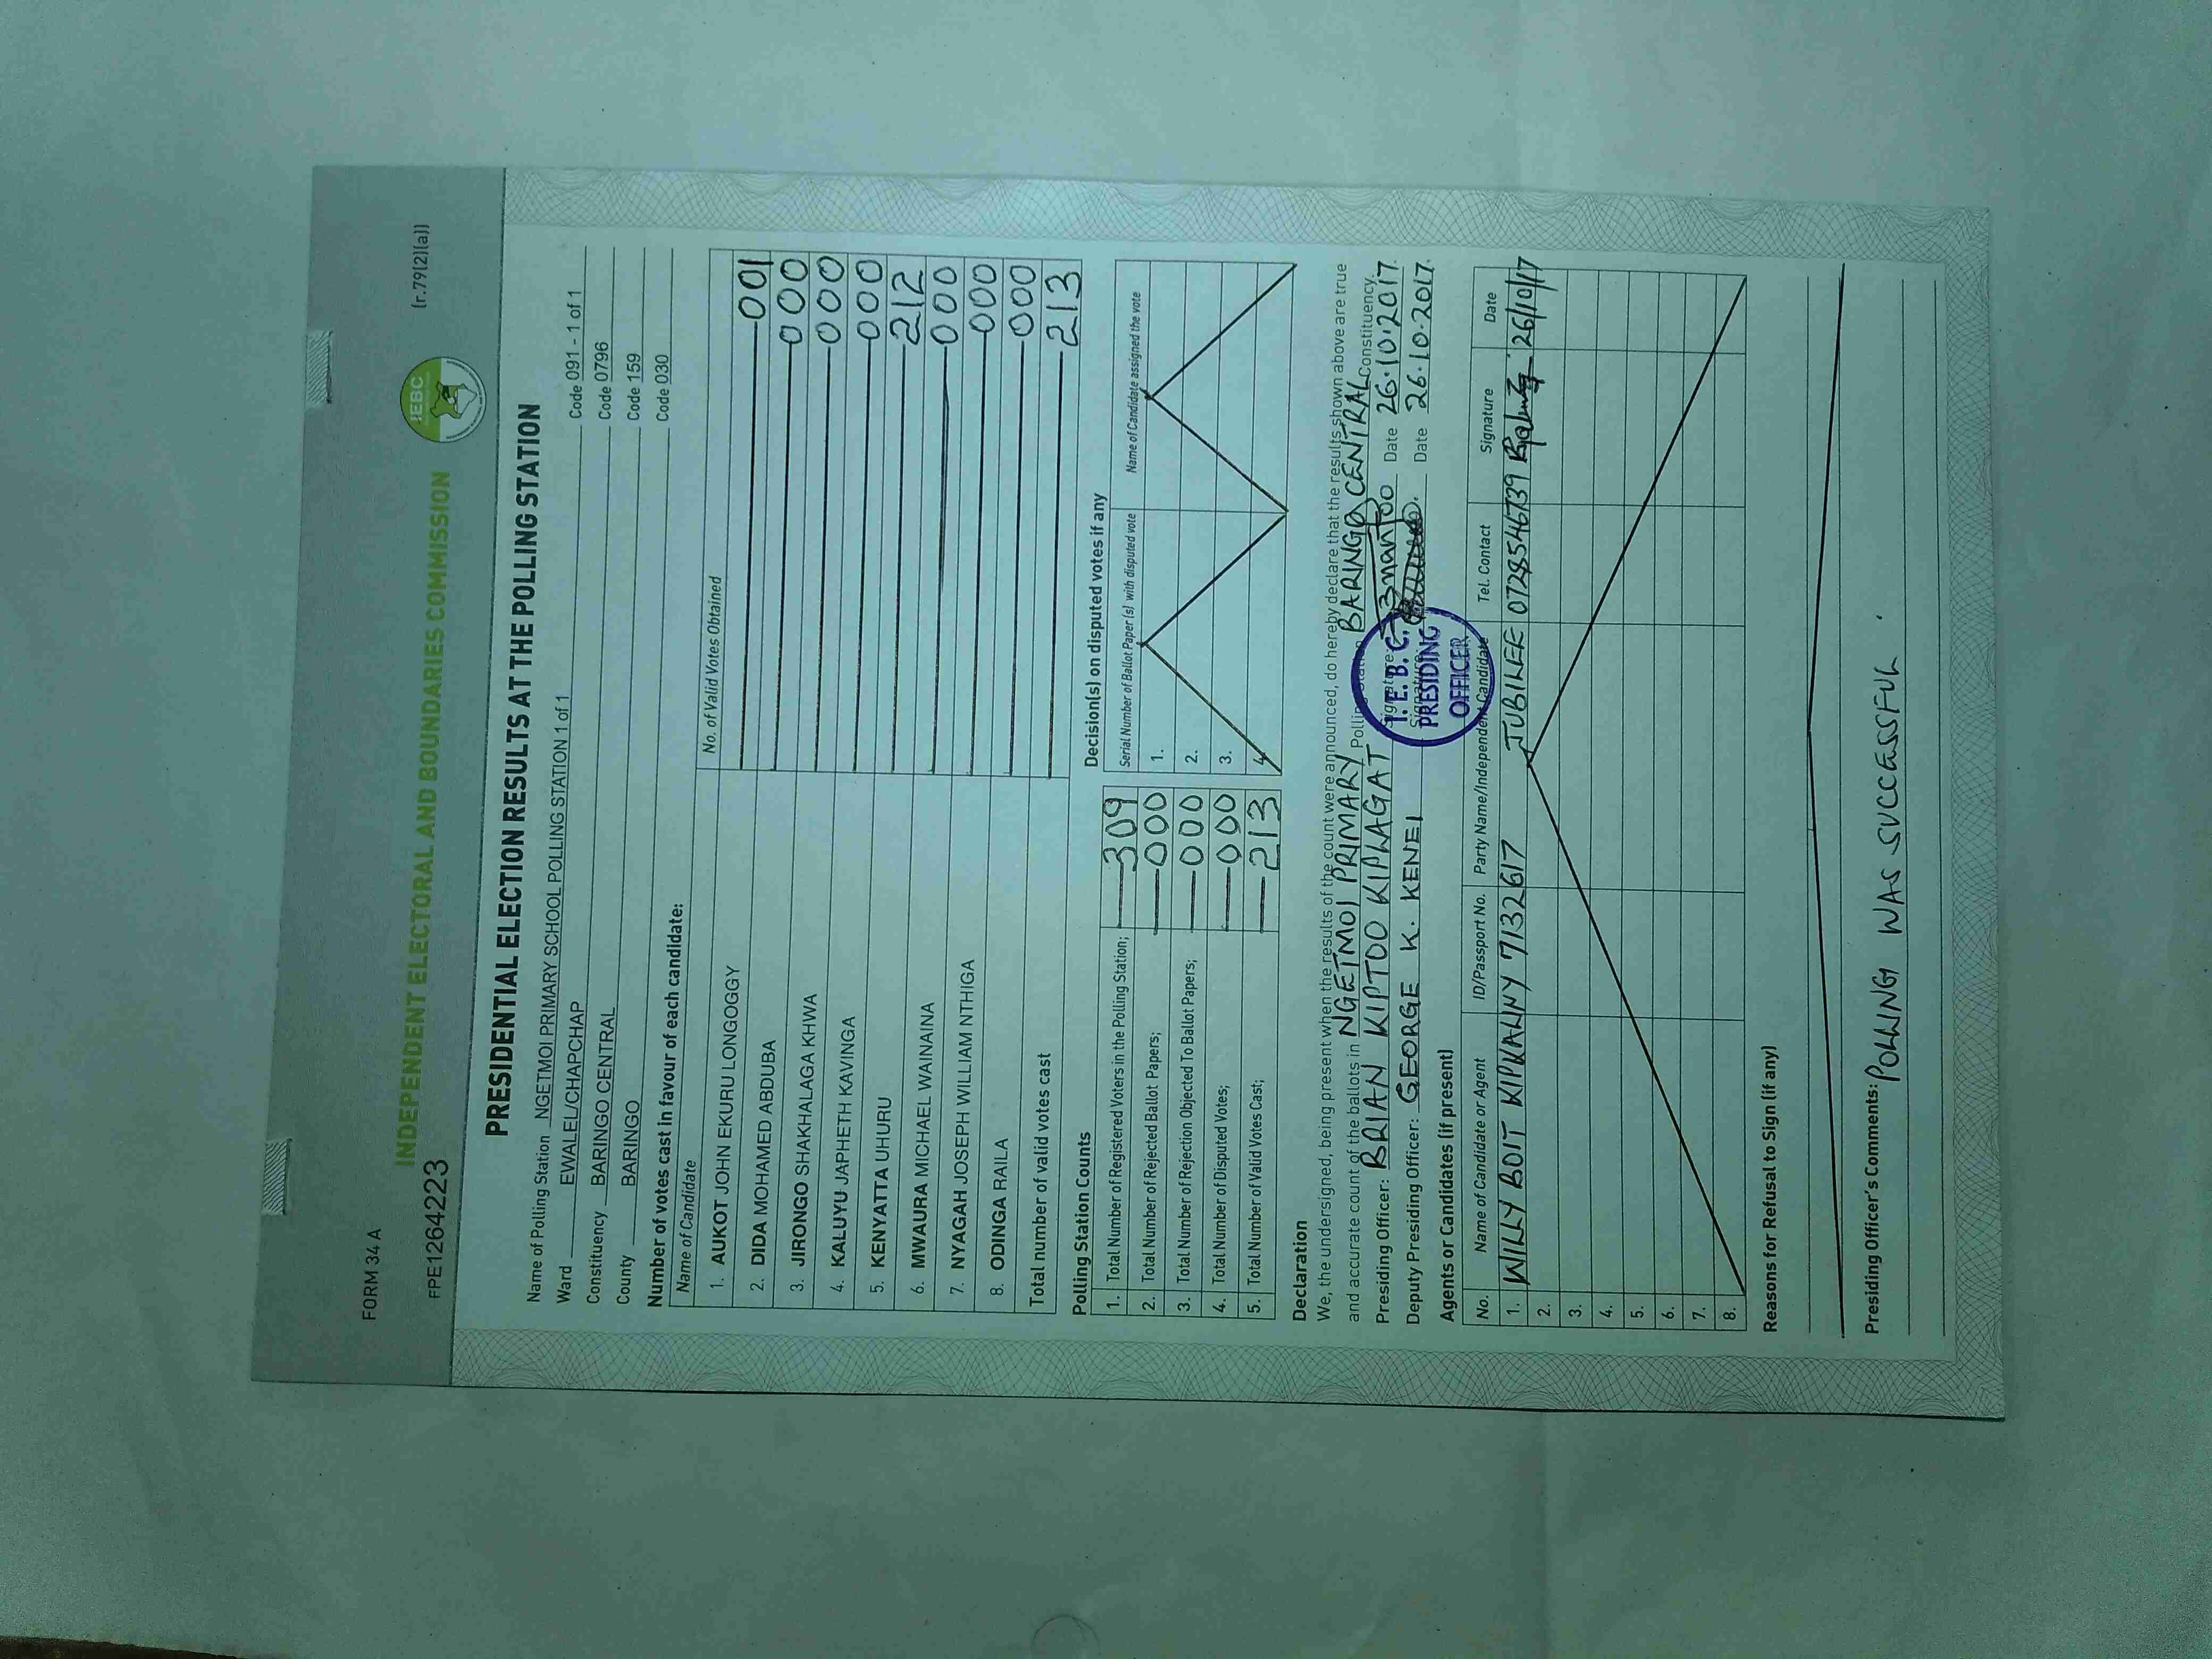 FORM 34 A
(r.79(2)(a))
FPE12642223
IEBC
INDEPENDENT ELECTORAL AND BOUNDARIES COMMISSION
PRESIDENTIAL ELECTION RESULTS AT THE POLLING STATION
Name of Polling Station NGETMOI PRIMARY SCHOOL POLLING STATION 1 of 1 Code 091 - 1 of 1
Ward EWALEL/CHAPCHAP Code 0796
Constituency BARINGO CENTRAL Code 159
County BARINGO Code 030
Number of votes cast in favour of each candidate:
Name of Candidate No. of Valid Votes Obtained
1. AUKOT JOHN EKURU LONGOGGY 001
2. DIDA MOHAMED ABDUBA 000
3. JIRONGO SHAKHALAGA KHWA 000
4. KALUYU JAPHETH KAVINGA 000
5. KENYATTA UHURU 212
6. MWAURA MICHAEL WAINAINA 000
7. NYAGAH JOSEPH WILLIAM NTHIGA 000
8. ODINGA RAILA 000
Total number of valid votes cast 213
Polling Station Counts
1. Total Number of Registered Voters in the Polling Station; 309
2. Total Number of Rejected Ballot Papers; 000
3. Total Number of Rejection Objected To Ballot Papers; 000
4. Total Number of Disputed Votes; 000
5. Total Number of Valid Votes Cast; 213
Decision(s) on disputed votes if any
Serial Number of Ballot Paper (s) with disputed vote Name of Candidate assigned the vote
1.
2.
3.
4.
Declaration
We, the undersigned, being present when the results of the count were announced, do hereby declare that the results shown above are true
and accurate count of the ballots in NGETMOI PRIMARY Polling Station BARINGO CENTRAL Constituency.
Presiding Officer: BRIAN KIPTOO KIPLAGAT Signature: Date 26.10.2017.
Deputy Presiding Officer: GEORGE K. KENEI Signature: Date 26.10.2017.
I. E. B. C.
PRESIDING
OFFICER
Agents or Candidates (if present)
No. Name of Candidate or Agent ID/Passport No. Party Name/Independent Candidate Tel. Contact Signature Date
1. WILLY BOIT KIPKALNY 7132617 JUBILEE 0728546739 26/10/17
2.
3.
4.
5.
6.
7.
8.
Reasons for Refusal to Sign (if any)
Presiding Officer's Comments: POLLING WAS SUCCESSFUL.